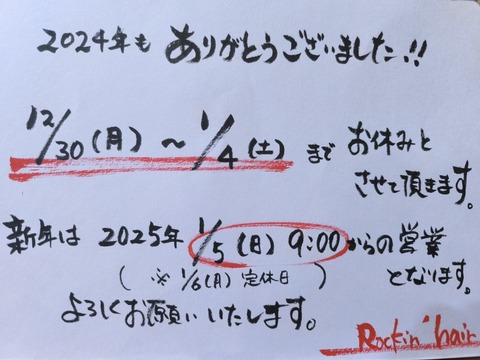 2024年も ありがとうございました!!
12/30(月)~1/4(土)まで お休みと
させて頂きます。
新年は 2025年 1/5(日) 9:00からの営業
(※1/6(月)定休日) となります。
よろしくお願いいたします。
Rockin' hair